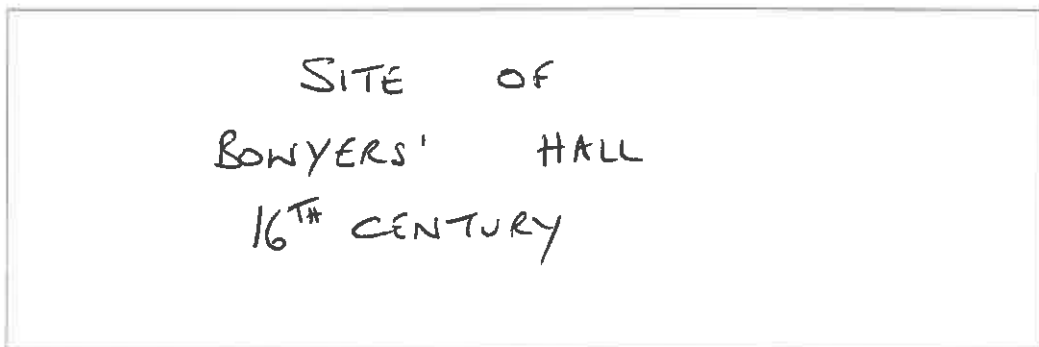 SITE OF
BOWYERS' HALL
16TH CENTURY